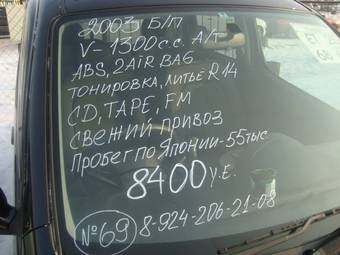 2003 Б/П
V-1300 c.c. A/T
ABS, 2AiR BAG
ТОНИРОВКА, ЛИТЬЕ R14
CD, TAPE, FM
СВЕЖИЙ ПРИВОЗ
ПРОБЕГ ПО ЯПОНИИ-55 тыс
8400 у.е.
№69 8-924-206-21-08